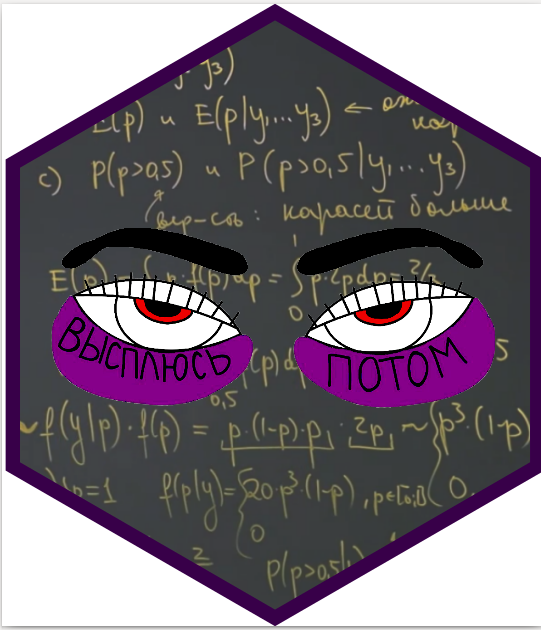 y₃)
E(p) и E(p|y₁...y₃) ←
c) P(p>0,5) и P(p>0,5|y₁...y₃)
вер-сть : карасей больше
E(p) = ∫p·f(p)dp = ∫p·2pdp = 2/3
1
0
ВЫСПЛЮСЬ ПОТОМ
(p)d 5
0,5
f(y|p)·f(p) = p·(1-p)·p · 2p ~ { p³·(1-p)
p=1 f(p|y)= { 20·p³·(1-p) , p∈[0;1] 0
0
2
P(p>0,5|